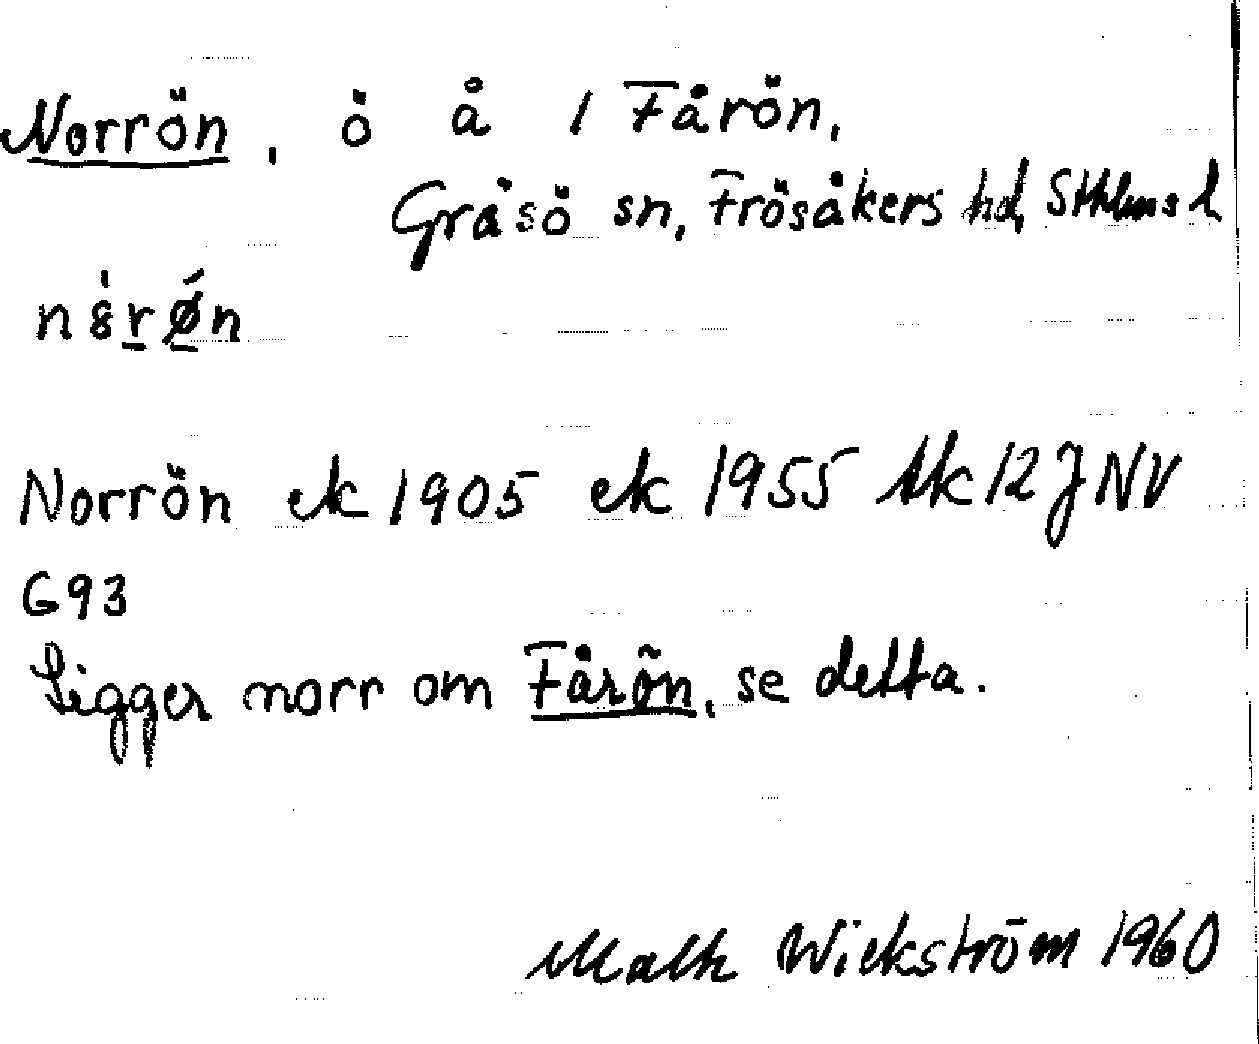 Norrön, ö å 1 Fårön,
Gräsö sn, Frösåkers hd, Sthlms l
Norrön ek 1905 ek 1955 tk 12 J NV
G93
Ligger norr om Fårön, se detta.
Wickström 1960